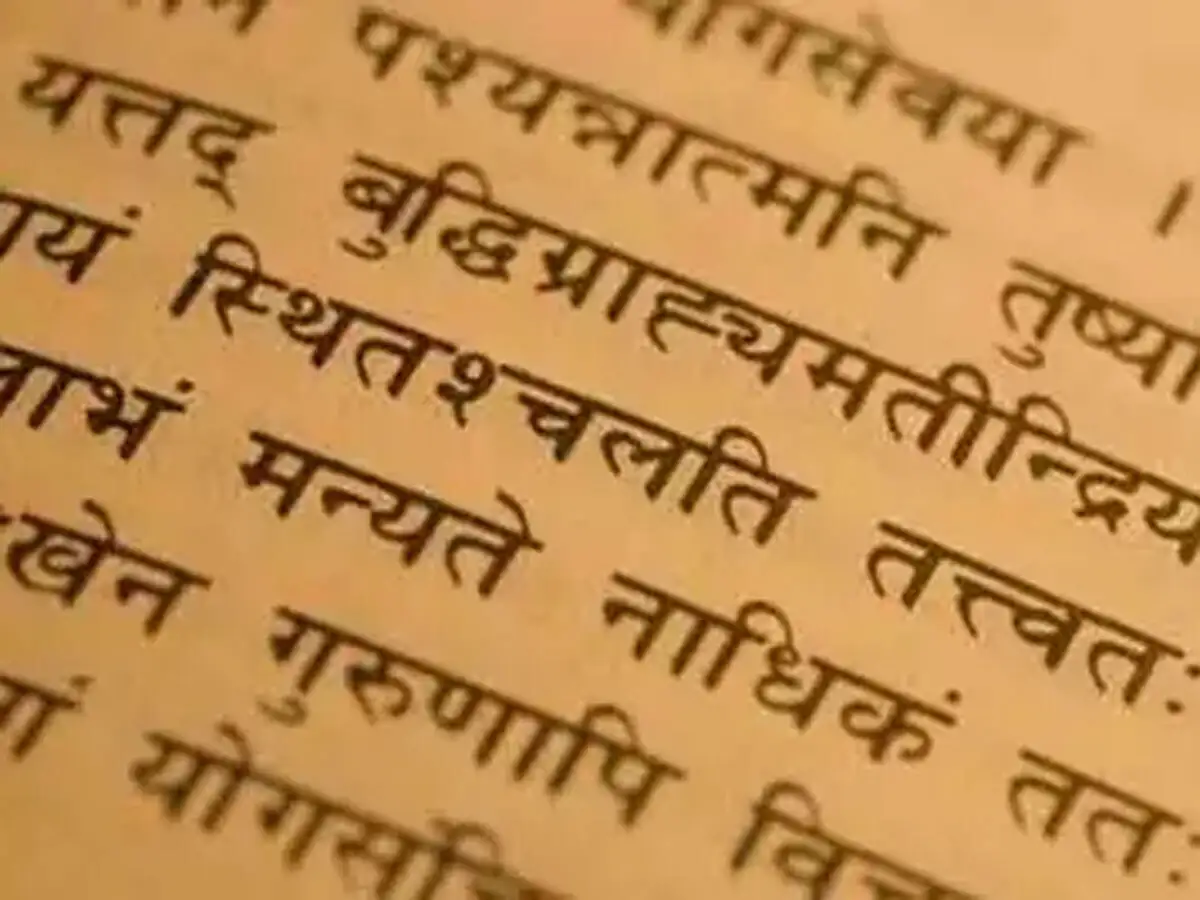 योगसेवया ।
पश्यन्नात्मनि तुष्या
यत्तद् बुद्धिग्राह्यमतीन्द्रिय
यं स्थितश्चलति तत्त्वतः
लाभं मन्यते नाधिकं ततः
खेन गुरुणापि वि
योगस